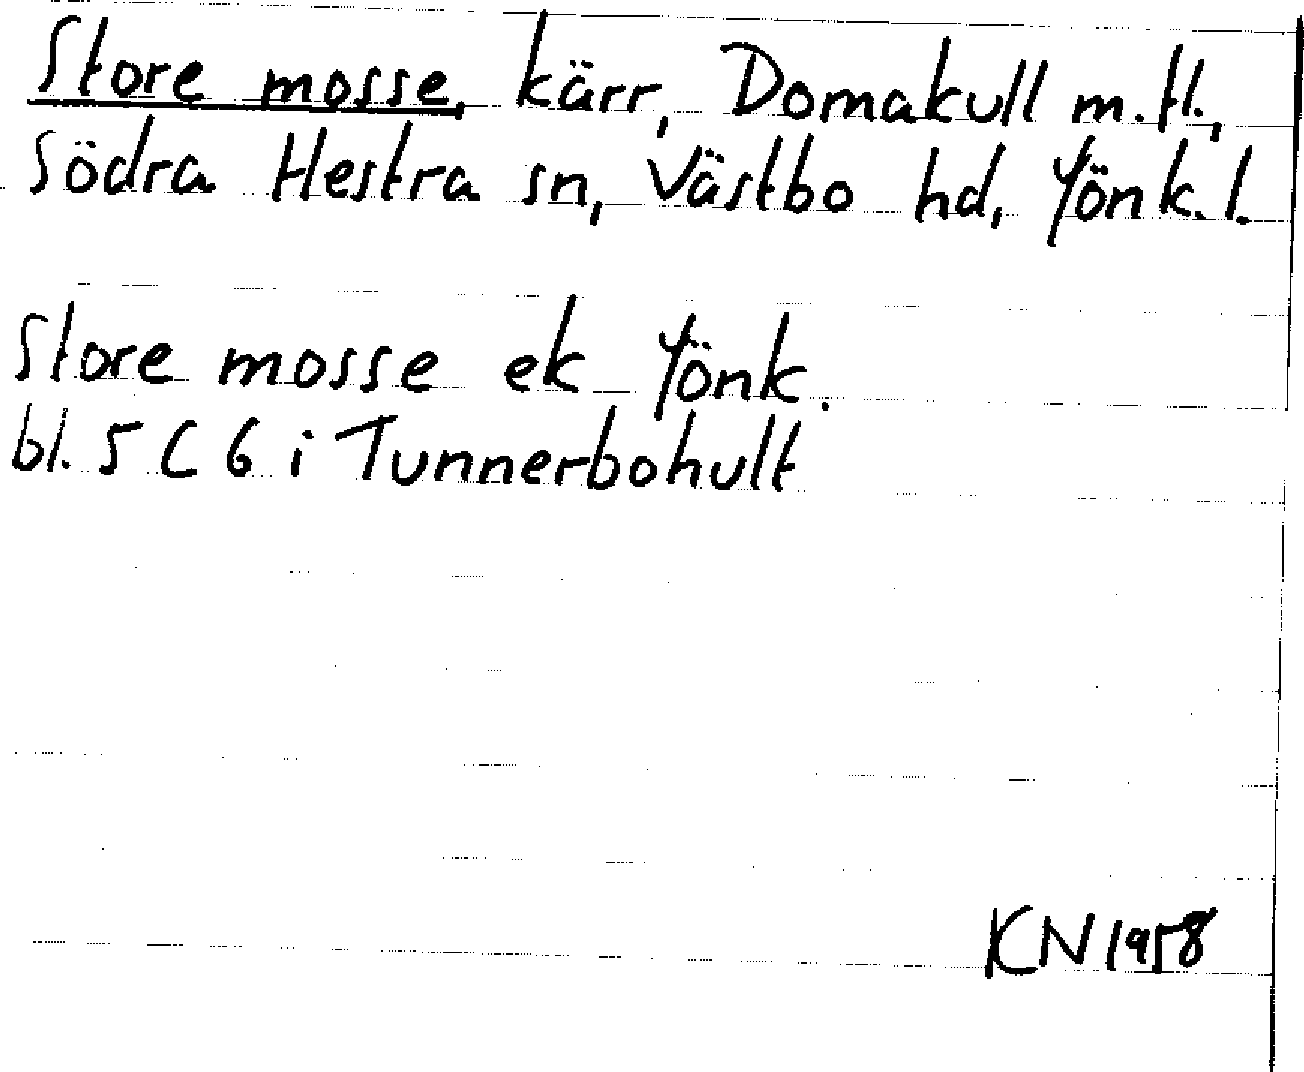 Store mosse, kärr, Domakull m.fl.,
Södra Hestra sn, Västbo hd, Jönk.l.
Store mosse ek Jönk.
bl. 5 C 6 i Tunnerbohult
KN 1958